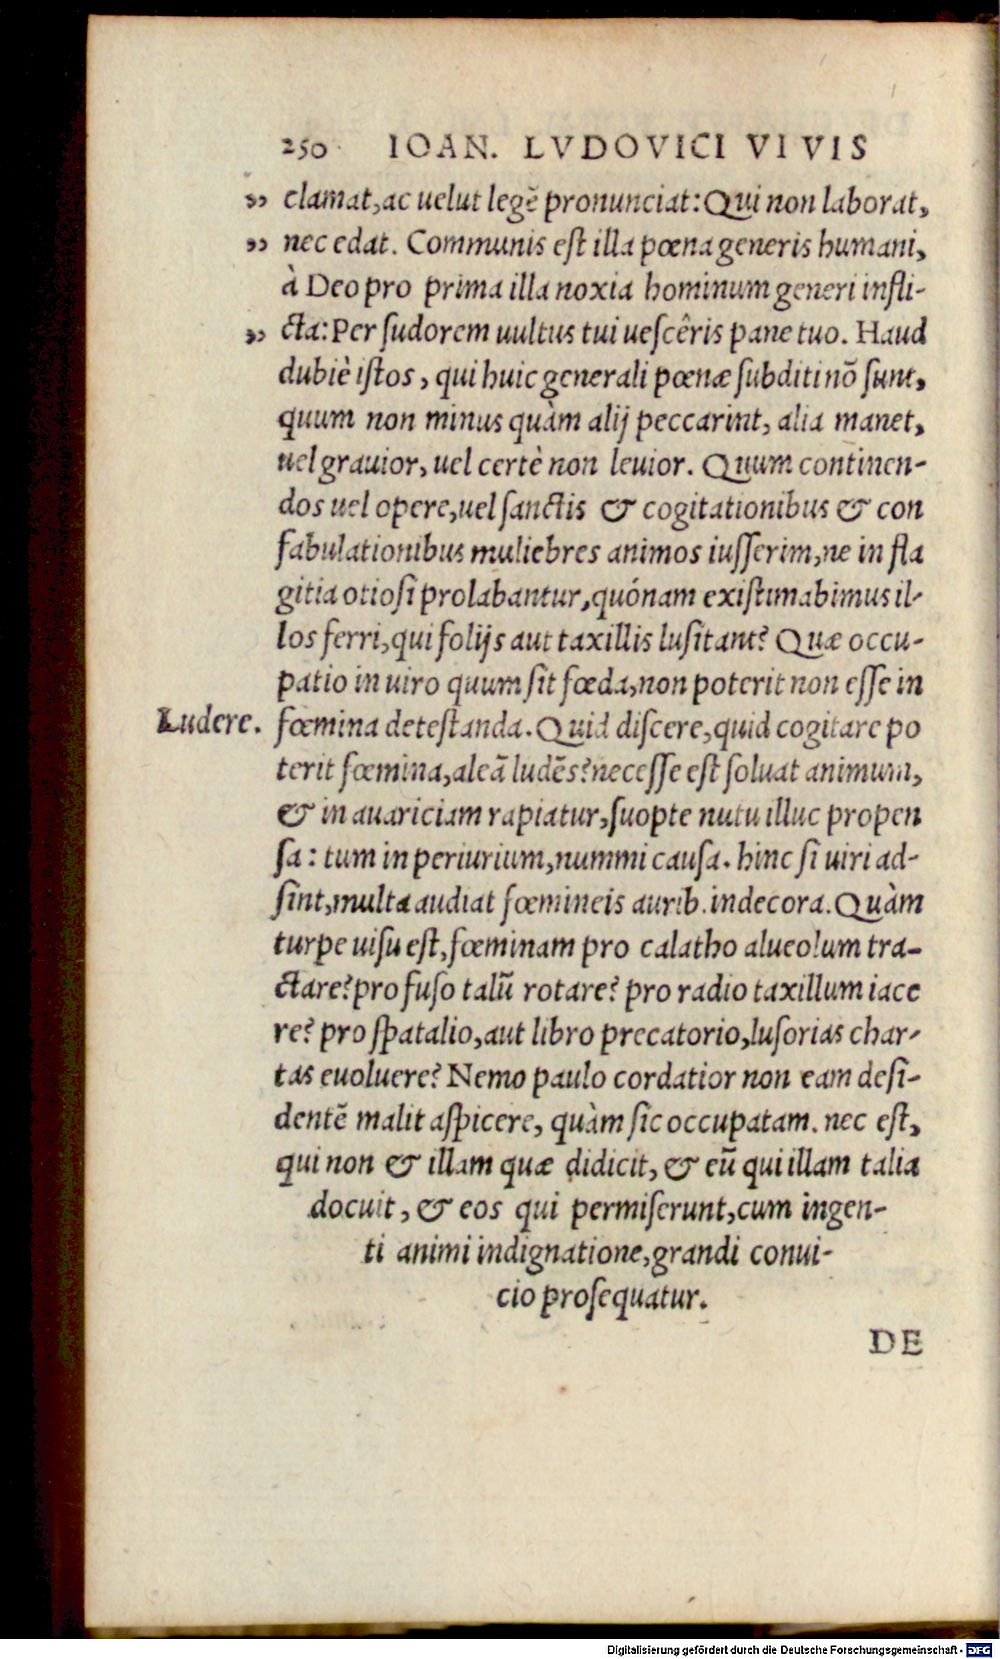 250 IOAN. LVDOVICI VIVIS
„ clamat, ac uelut legẽ pronunciat: Qui non laborat,
„ nec edat. Communis est illa pœna generis humani,
à Deo pro prima illa noxia hominum generi infli-
„ cta: Per sudorem uultus tui uescêris pane tuo. Haud
dubiè istos, qui huic generali pœnæ subditi nõ sunt,
quum non minus quàm alij peccarint, alia manet,
uel grauior, uel certè non leuior. Quum continen-
dos uel opere, uel sanctis & cogitationibus & con
fabulationibus muliebres animos iusserim, ne in fla
gitia otiosi prolabantur, quónam existimabimus il-
los ferri, qui folijs aut taxillis lusitant? Quæ occu-
patio in uiro quum sit fœda, non poterit non esse in
Ludere. fœmina detestanda. Quid discere, quid cogitare po
terit fœmina, aleã ludẽs? necesse est soluat animum,
& in auariciam rapiatur, suopte nutu illuc propen
sa: tum in periurium, nummi causa. hinc si uiri ad-
sint, multa audiat fœmineis aurib. indecora. Quàm
turpe uisu est, fœminam pro calatho alueolum tra-
ctare? pro fuso talũ rotare? pro radio taxillum iace
re? pro spatalio, aut libro precatorio, lusorias char-
tas euoluere? Nemo paulo cordatior non eam desi-
dentẽ malit aspicere, quàm sic occupatam. nec est,
qui non & illam quæ didicit, & eũ qui illam talia
docuit, & eos qui permiserunt, cum ingen-
ti animi indignatione, grandi conui-
cio prosequatur.
DE
Digitalisierung gefördert durch die Deutsche Forschungsgemeinschaft - DFG